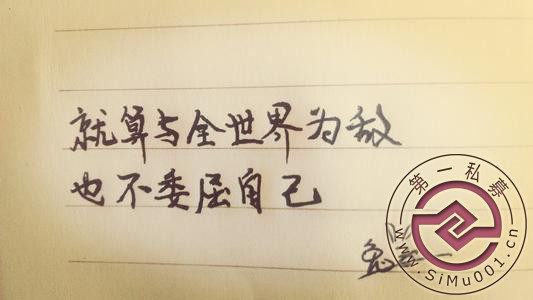 就算与全世界为敌
也不委屈自己
第一私募
www.SiMu001.cn